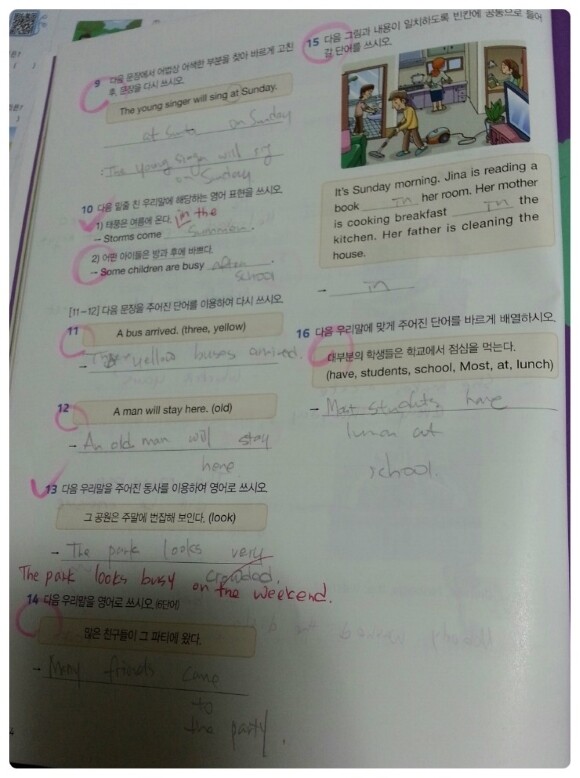 9 다음 문장에서 어법상 어색한 부분을 찾아 바르게 고친
후, 문장을 다시 쓰시오.
The young singer will sing at Sunday.
on Sunday
The young will
on Sunday
10 다음 밑줄 친 우리말에 해당하는 영어 표현을 쓰시오.
1) 태풍은 여름에 온다.
in the
→ Storms come
2) 어떤 아이들은 방과 후에 바쁘다.
→ Some children are busy after
school
[11~12] 다음 문장을 주어진 단어를 이용하여 다시 쓰시오.
11
A bus arrived. (three, yellow)
→ yellow buses arrived.
12
A man will stay here. (old)
→ An old man will stay
here
13 다음 우리말을 주어진 동사를 이용하여 영어로 쓰시오.
그 공원은 주말에 번잡해 보인다. (look)
→ The park looks very
crowded.
The park looks busy on the weekend.
14 다음 우리말을 영어로 쓰시오. (6단어)
많은 친구들이 그 파티에 왔다.
→ Many friends came
to
the party.
15 다음 그림과 내용이 일치하도록 빈칸에 공통으로 들어
갈 단어를 쓰시오.
It's Sunday morning. Jina is reading a
book in her room. Her mother
is cooking breakfast in the
kitchen. Her father is cleaning the
house.
→ in
16 다음 우리말에 맞게 주어진 단어를 바르게 배열하시오.
대부분의 학생들은 학교에서 점심을 먹는다.
(have, students, school, Most, at, lunch)
→ Most students have
lunch at
school.